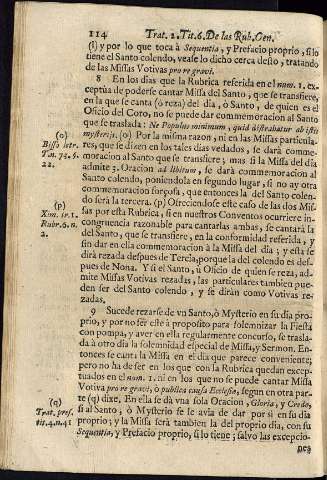 114 Trat. 2. Tit. 6. De las Rub. Gen.
(l) y por lo que toca à Sequentia, y Prefacio proprio, si lo
tiene el Santo colendo, vease lo dicho cerca desto, tratando
de las Missas Votivas pro re gravi.
8 En los dias que la Rubrica referida en el num. 1. ex-
ceptùa de poderse cantar Missa del Santo, que se transfiere,
en la que se canta (ò reza) del dia, ò Santo, de quien es el
Oficio del Coro, no se puede dar commemoracion al Santo
que se traslada: Ne Populus minimum, quid distrahatur ab istis
mysterijs. (o) Por la misma razon, ni en las Missas particula-
res, que se dizen en los tales dias vedados, se darà comme-
moracion al Santo que se transfiere; mas si la Missa del dia
admite 3. Oracion ad libitum, se darà commemoracion al
Santo colendo, poniendola en segundo lugar, si no ay otra
commemoracion forçosa, que entonces la del Santo colen-
do serà la tercera. (p) Ofreciendose este caso de las dos Mis-
sas por esta Rubrica, si en nuestros Conventos ocurriere in-
congruencia razonable para cantarlas ambas, se cantarà la
del Santo, que se transfiere, en la conformidad referida, y
sin dar en ella commemoracion à la Missa del dia; y esta se
dirà rezada despues de Tercia, porque la del colendo es des-
pues de Nona. Y si el Santo, ù Oficio de quien se reza, ad-
mite Missas Votivas rezadas, las particulares tambien pue-
den ser del Santo colendo, y se diràn como Votivas re-
zadas.
9 Sucede rezarse de vn Santo, ò Mysterio en su dia pro-
prio, y por no ser este à proposito para solemnizar la Fiesta
con pompa, y aver en ella regularmente concurso, se trasla-
da à otro dia la solemnidad especial de Missa, y Sermon. En-
tonces se canta la Missa en el dia que parece conveniente;
pero no ha de ser en los que con la Rubrica quedan excep-
tuados en el num. 1. ni en los que no se puede cantar Missa
Votiva pro re gravi, ò publica causa Ecclesiæ, segun en otra par-
te (q) dixe. En ella se dà vna sola Oracion, Gloria, y Credo,
si al Santo, ò Mysterio se le avia de dar por si en su dia
proprio; y la Missa serà tambien la del proprio dia, con su
Sequentia, y Prefacio proprio, si lo tiene; salvo las excepcio-
nes
(o)
22.
(p)
2.
(q)